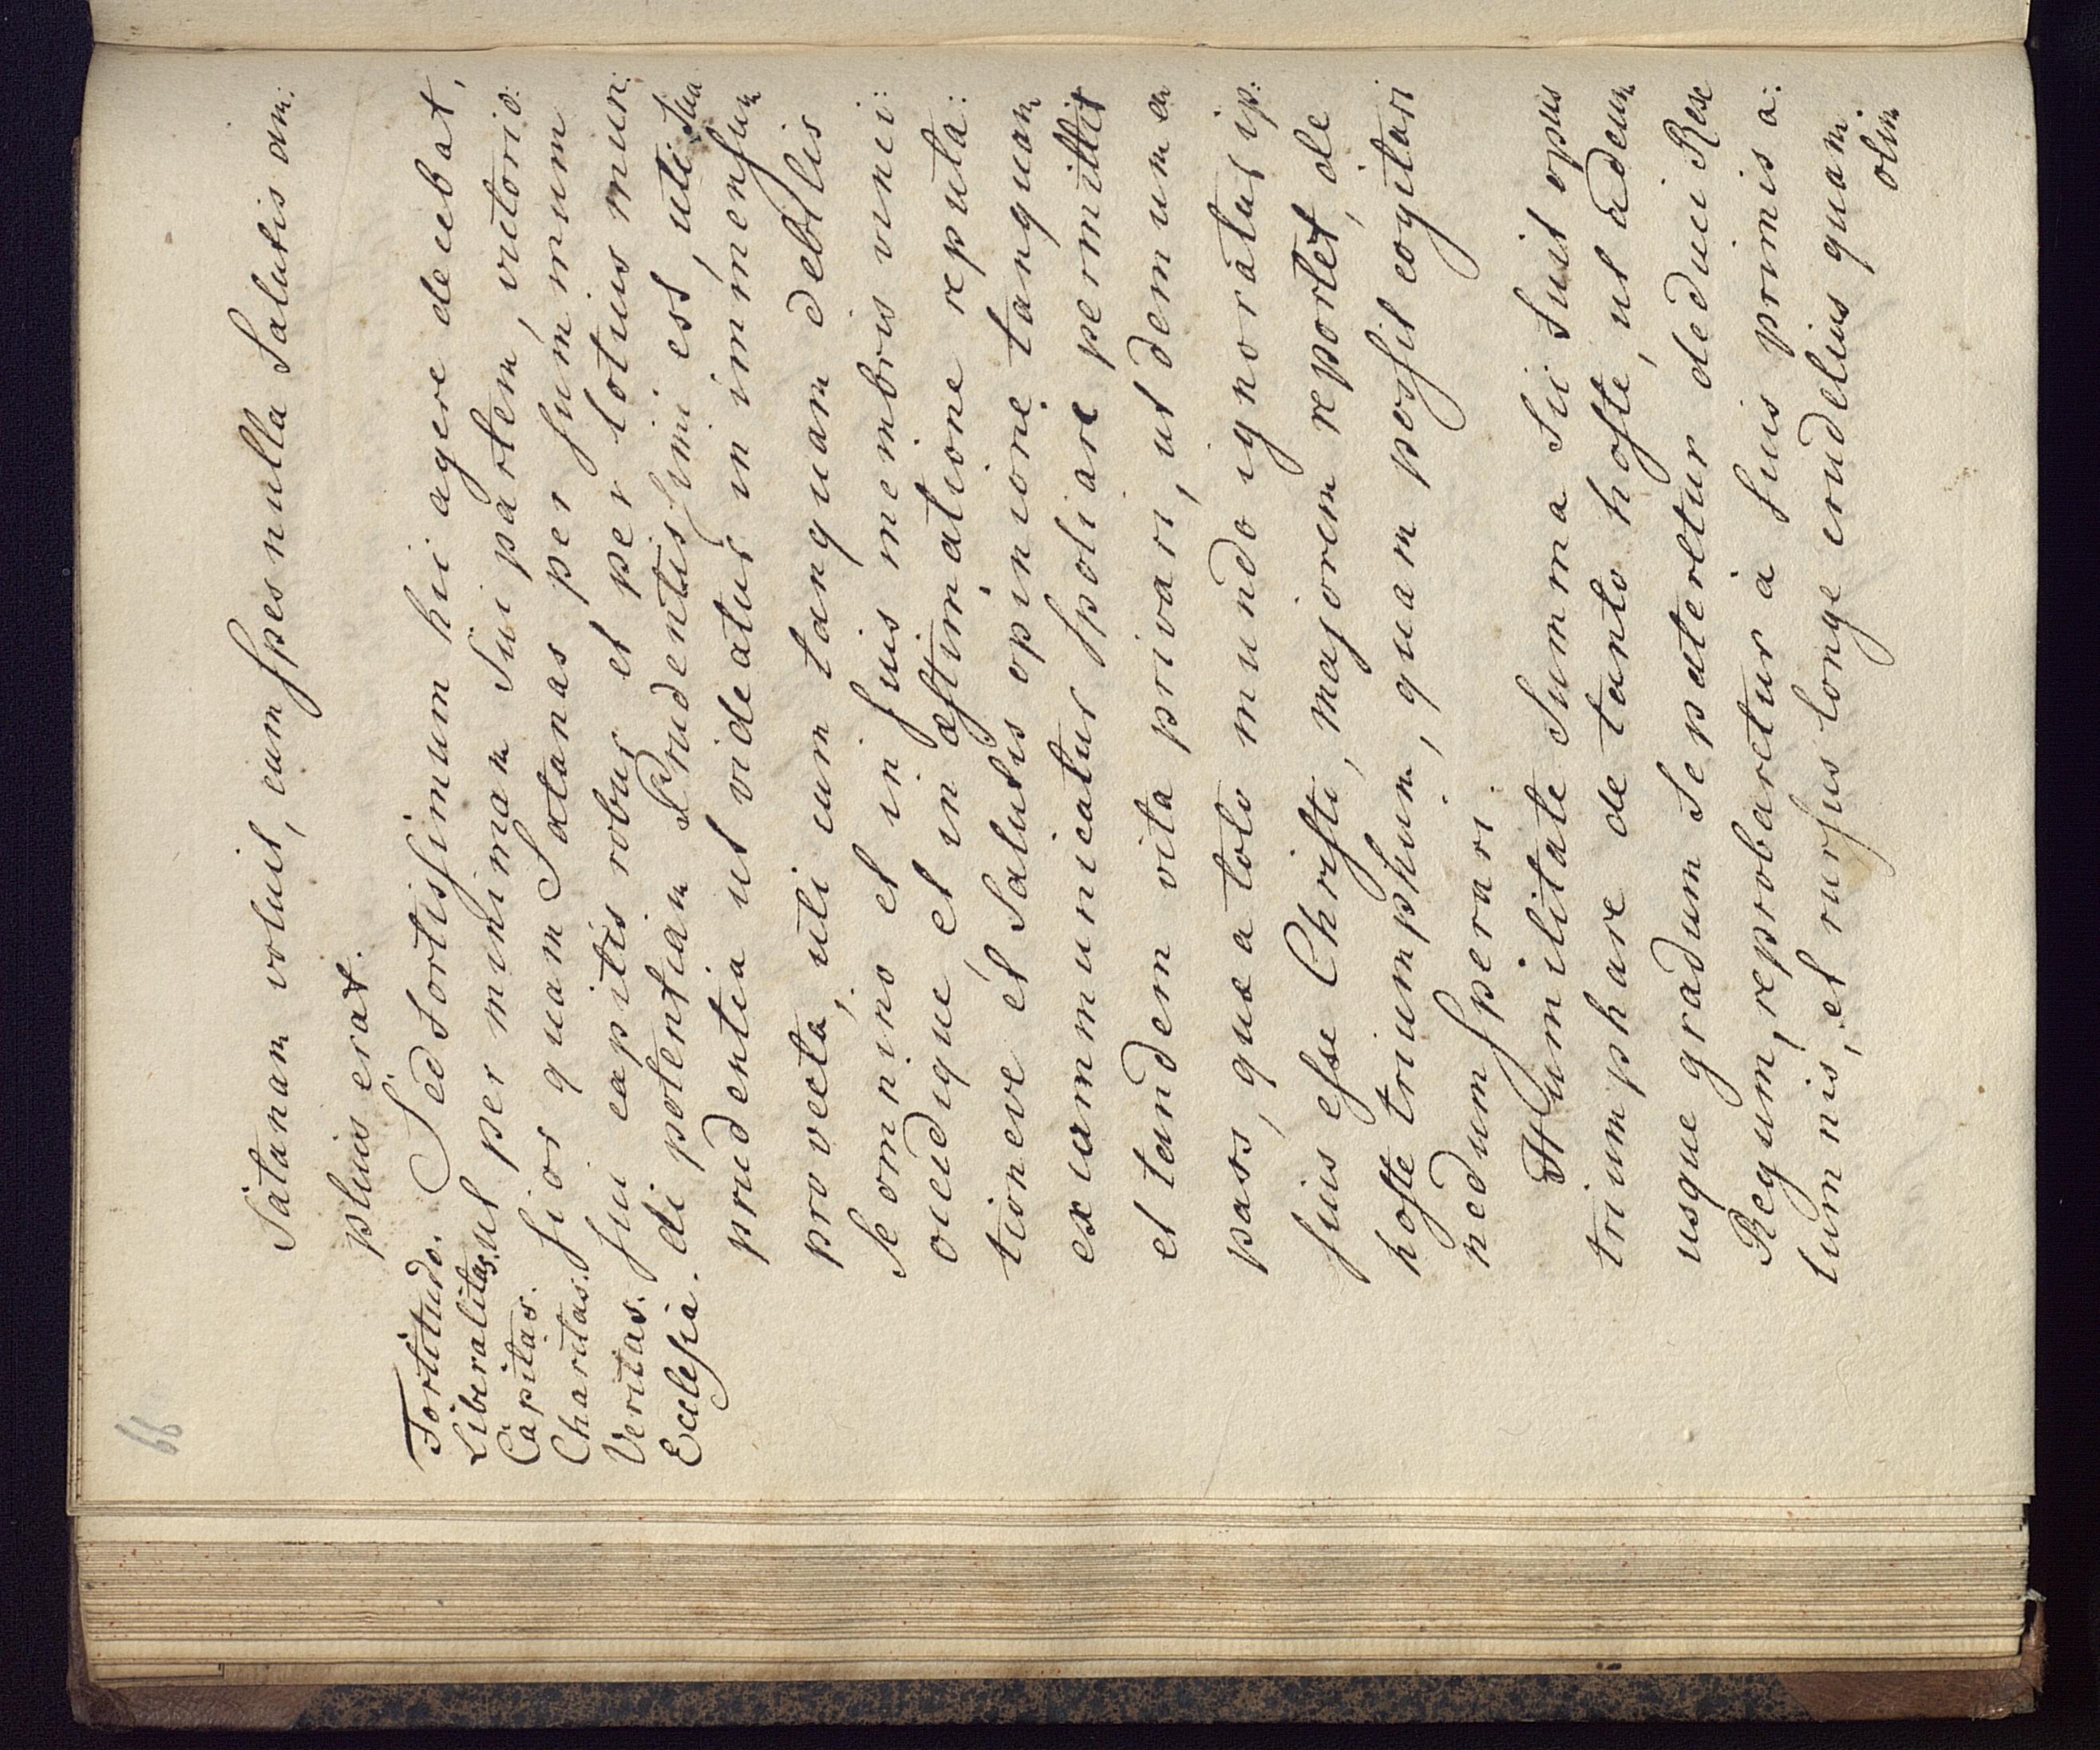 66
Satanam voluit, cum spes nulla Salutis am:
plius erat.
Fortitudo. Sed fortissimum hic agere decebat,
Liberalitas. ut per minimam Sui partem, victorio:
Capitas. sior quam Satanas per summum
Charitas. sui capitis robur et per totius mun:
Veritas. di potentiam Prudentissimi est, uti Sua
Ecclesia. prudentia ut videatur in immensum
provecta, uti cum tanquam debilis
Se omnino et in suis membris vinci:
occidique, et in æstimatione reputa:
tioneve et Salutis opinione tanquam
excummunicatur spoliare permittit
et tandem vita privari, ut demum ea
pars, quæ a toto mundo ignoratur ip:
sius esse Christi, majorem reportet, de
hoste triumphum, quam possit cogitari
nedum sperari.
Humilitate Summa Sic Fuit opus
triumphare de tanto hoste, ut ad eum
usque gradum Se pateretur deduci Rex
Regum, reprobaretur à suis primis a:
lumnis, et rursus longe crudelius quam
olim